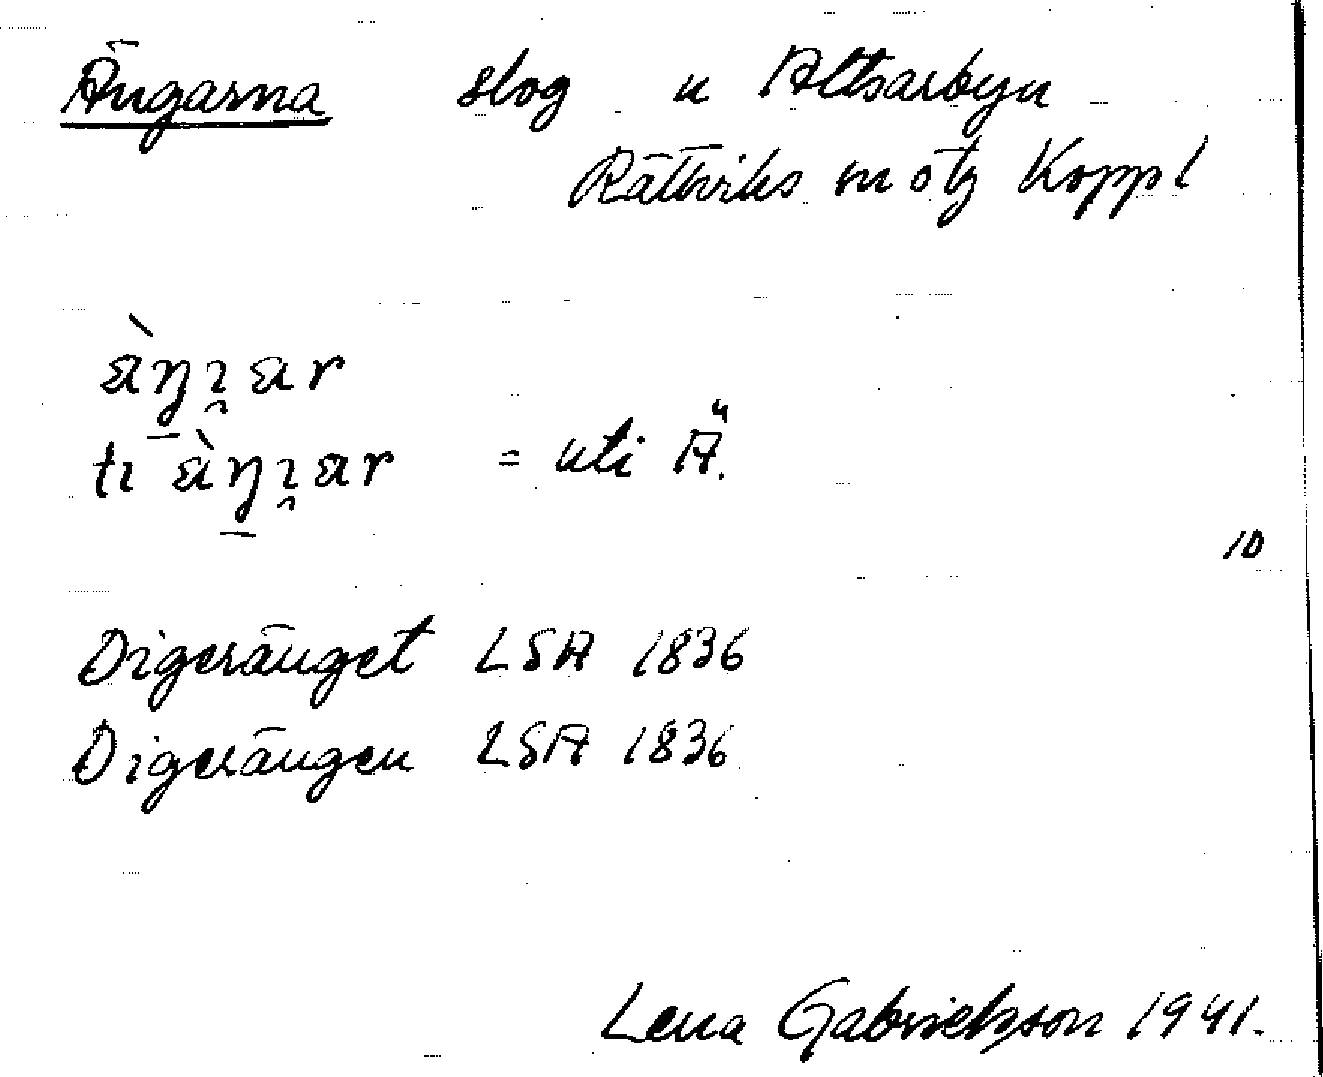 Ängarna slog u Altsarbyn
Rättviks sn o tg Koppl
àŋɿ̯ar
tı àŋɿ̯ar = uti Ä.
10
Digeränget LSA 1836
Digerängen LSA 1836
Lena Gabrielsson 1941.